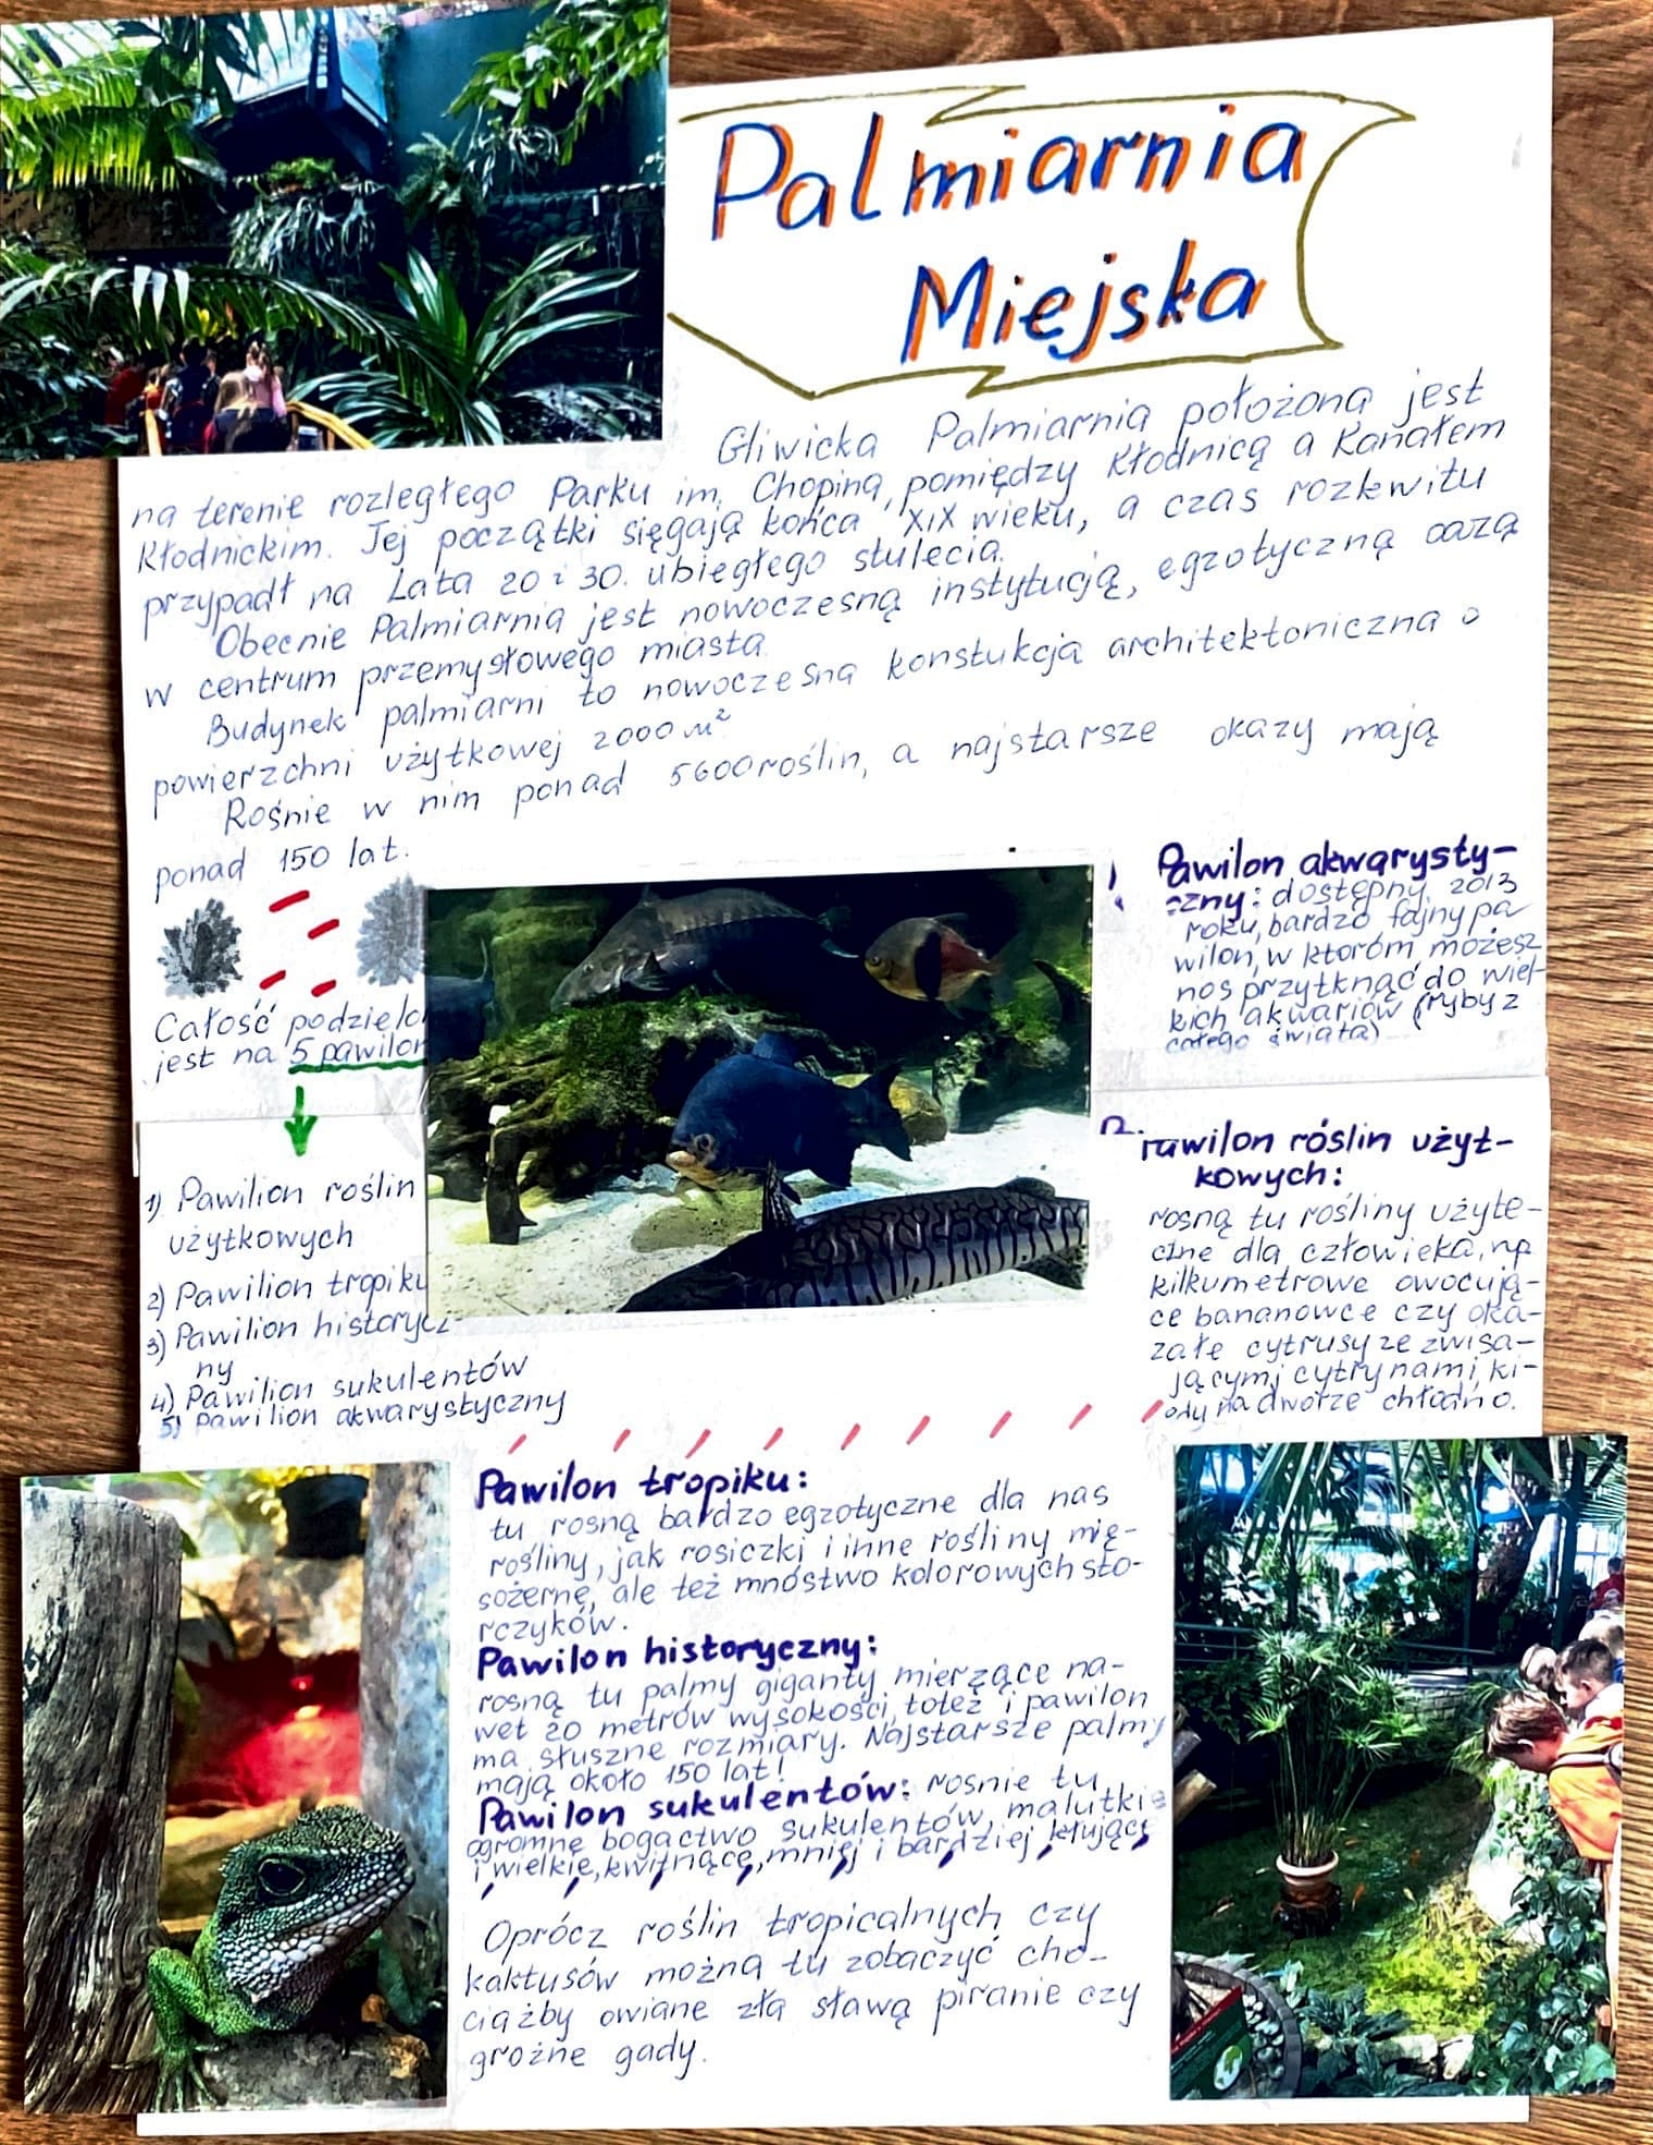 Palmiarnia
Miejska
Gliwicka Palmiarnia położona jest
na terenie rozległego Parku im. Chopina, pomiędzy Kłodnicą a Kanałem
Kłodnickim. Jej początki sięgają końca XIX wieku, a czas rozkwitu
przypadł na Lata 20 i 30. ubiegłego stulecia.
Obecnie Palmiarnia jest nowoczesną instytucją, egzotyczną oazą
w centrum przemysłowego miasta
Budynek palmiarni to nowoczesna konstukcja architektoniczna o
powierzchni użytkowej 2000 m²
Rośnie w nim ponad 5600 roślin, a najstarsze okazy mają
ponad 150 lat.
Całość podzielo
jest na 5 pawilon
1) Pawilion roślin
użytkowych
2) Pawilion tropiku
3) Pawilion historycz-
ny
4) Pawilion sukulentów
5) Pawilion akwarystyczny
Pawilon akwarysty-
czny: dostępny 2013
roku, bardzo fajny pa
wilon, w ktoróm możesz
nos przytknąć do wiel-
kich akwariów (ryby z
całego świata)
2. Pawilon róslin użyt-
kowych:
rosną tu rośliny użyte-
czne dla człowieka, np
kilkumetrowe owocują-
ce bananowce czy oka-
załe cytrusy ze zwisa-
jącymi cytrynami, ki-
edy na dworze chłodno.
Pawilon tropiku:
tu rosną bardzo egzotyczne dla nas
rośliny, jak rosiczki i inne rośliny mię-
sożerne, ale też mnóstwo kolorowych sto-
rczyków.
Pawilon historyczny:
rosną tu palmy giganty mierzące na-
wet 20 metrów wysokości, toteż i pawilon
ma słuszne rozmiary. Najstarsze palmy
mają około 150 lat!
Pawilon sukulentów: rosnie tu
ogromne bogactwo sukulentów, malutkie
i wielkie, kwitnące, mniej i bardziej kłujące
Oprócz roślin tropicalnych czy
kaktusów można tu zobaczyć cho-
ciażby owiane złą sławą piranie czy
groźne gady.